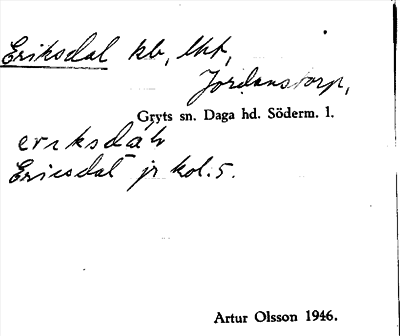 Eriksdal kb, lht,
Jordanstorp,
Gryts sn. Daga hd. Söderm. l.
eriksdal
Ericsdal jr kol. 5.
Artur Olsson 1946.